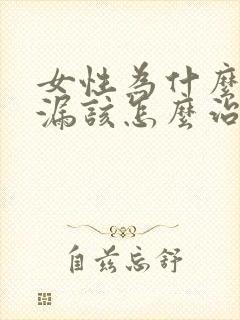 女性為什麼
漏該怎麼治
自茲忘舒